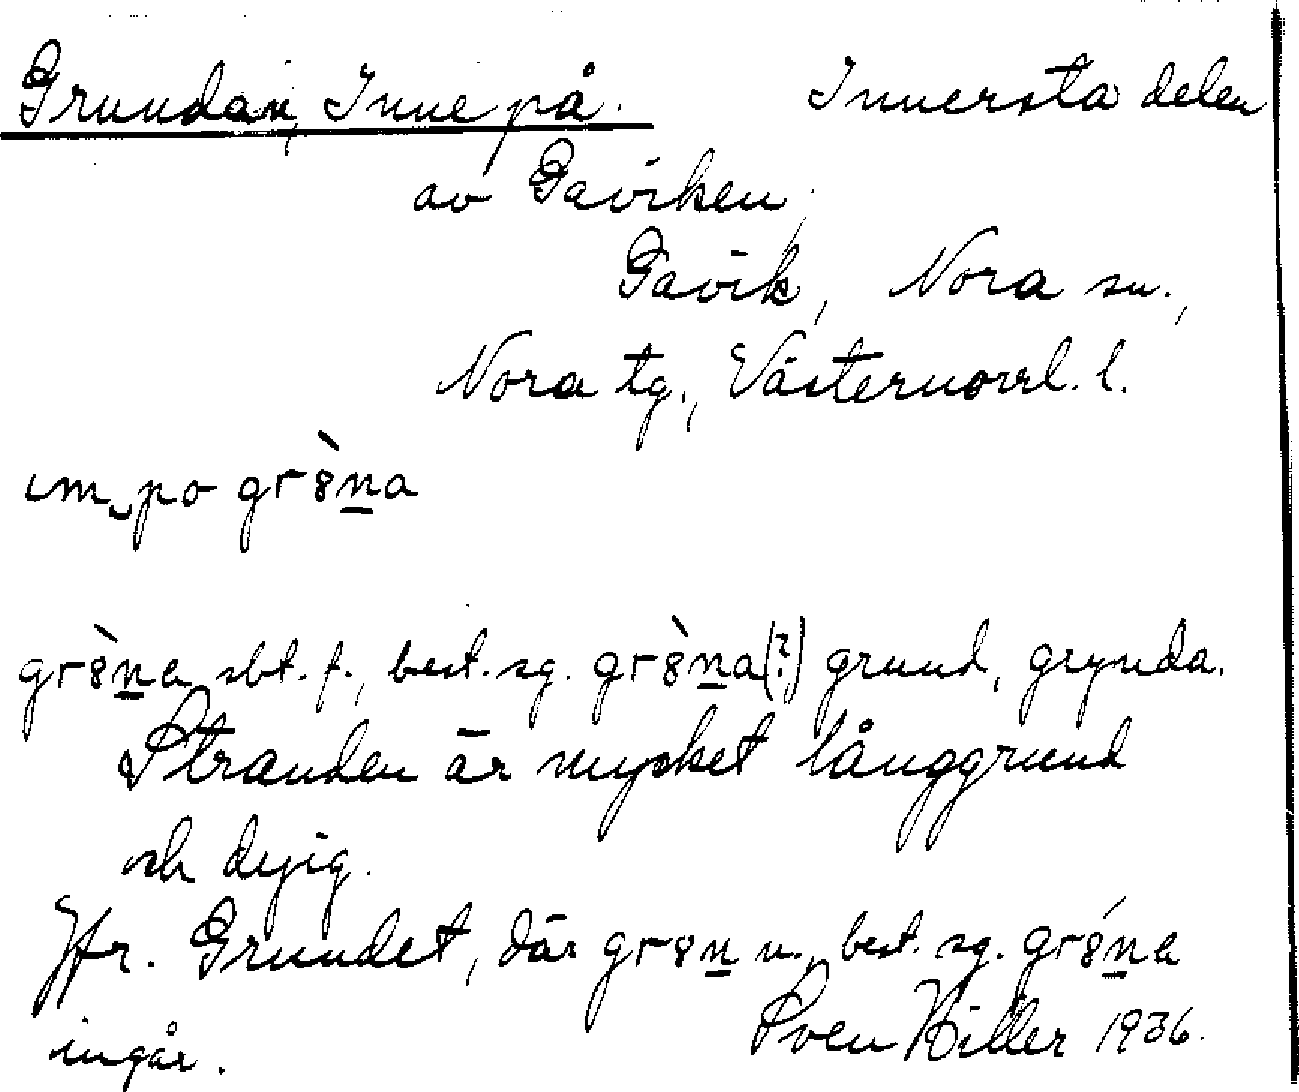 Grundan, Inne på. Innersta delen
av Gaviken,
Gavik, Nora sn.,
Nora tg., Västernorrl. l.
ɩm‿po gr8̀n̲a
gr8̀n̲a sbt. f., best. sg. gr8̀n̲a(?) grund, grynda.
Stranden är mycket långgrund
och dyig.
Jfr. Grundet, där gr8n̲ n., best. sg. gr8́n̲a
ingår. Sven Hiller 1936.